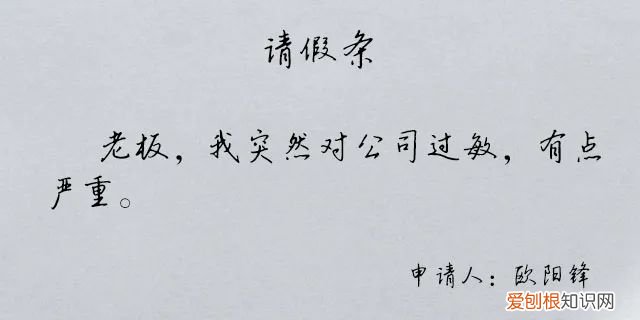 请假条
老板，我突然对公司过敏，有点
严重。
申请人：欧阳锋
爱刨根知识网